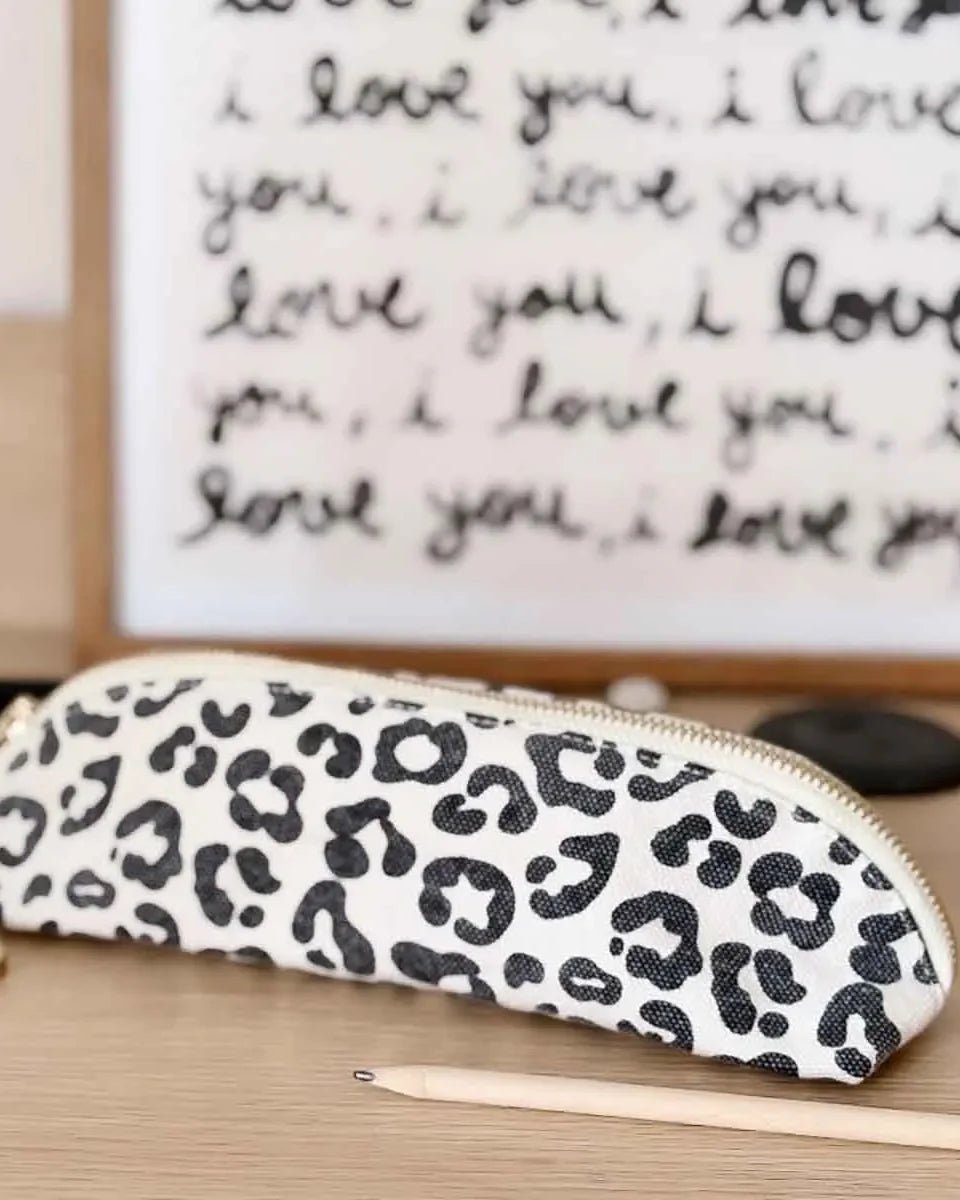 love you, i love
i love you, i love
you, i love you, i
love you, i love
you, i love you, i
love you, i love you